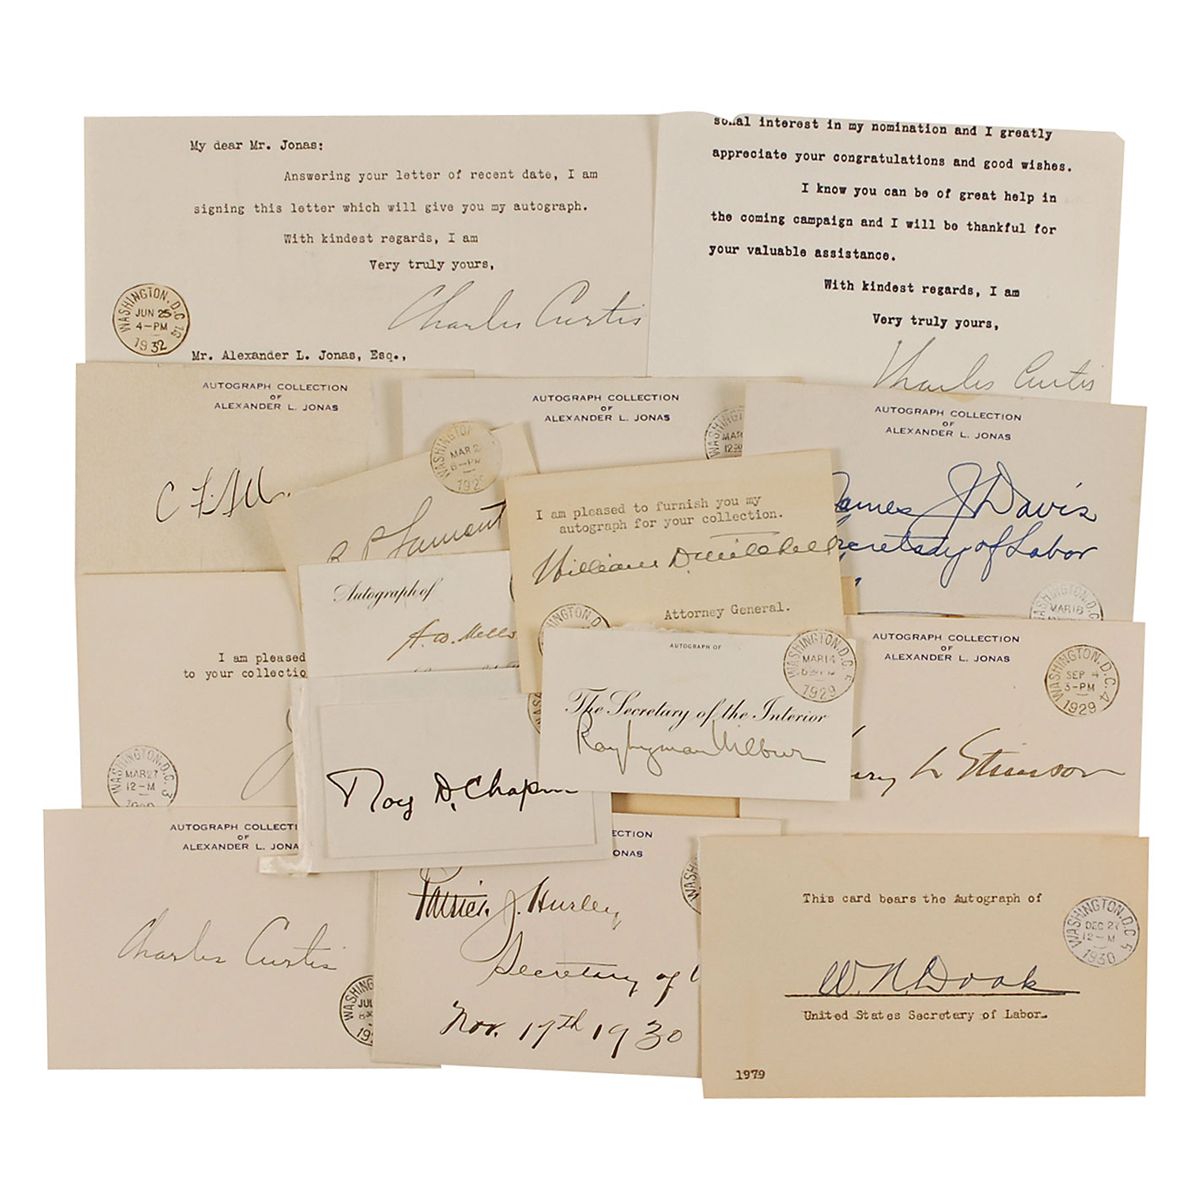 My dear Mr. Jonas:
Answering your letter of recent date, I am
signing this letter which will give you my autograph.
With kindest regards, I am
Very truly yours,
Charles Curtis
WASHINGTON, D.C.
JUN 25
4-PM
1932
Mr. Alexander L. Jonas, Esq.,
sonal interest in my nomination and I greatly
appreciate your congratulations and good wishes.
I know you can be of great help in
the coming campaign and I will be thankful for
your valuable assistance.
With kindest regards, I am
Very truly yours,
Charles Curtis
AUTOGRAPH COLLECTION
OF
ALEXANDER L. JONAS
AUTOGRAPH COLLECTION
OF
ALEXANDER L. JONAS
WASHINGTON
MAR
AUTOGRAPH COLLECTION
OF
ALEXANDER L. JONAS
James J Davis
Secretary of Labor
WASHINGTON, D.C.
MAR 18
WASHINGTON
MAR 2
8-PM
192
R P Lamont
I am pleased to furnish you my
autograph for your collection.
William D. Mitchell
Attorney General.
Autograph of
A. W. Mello
I am pleased
to your collectio
WASHINGTON, D.C. 3
MAR 27
12-M
AUTOGRAPH OF
The Secretary of the Interior
Ray Lyman Wilbur
WASHINGTON, D.C.
MAR 14
1929
AUTOGRAPH COLLECTION
OF
ALEXANDER L. JONAS
WASHINGTON, D.C. 4
SEP 4
3-PM
1929
Henry L Stimson
Roy D. Chapin
AUTOGRAPH COLLECTI
OF
ALEXANDER L. JONA
Charles Curtis
WASHING
JUL
ECTION
ONAS
Patrick J. Hurley
Secretary of W
Nov. 17th 1930
WASHING
This card bears the Autograph of
WASHINGTON, D.C. 5
DEC 27
12-M
1930
W. N. Doak
United States Secretary of Labor.
1979